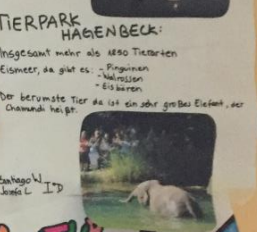 TIERPARK
HAGENBECK:
Insgesamt mehr als 1850 Tierarten
Eismeer, da gibt es: - Pinguinen
- Walrossen
- Eisbären
Der berumste Tier da ist ein sehr großes Elefant, der
Chamundi heißt.
Santiago W.
Josefa L
I°D